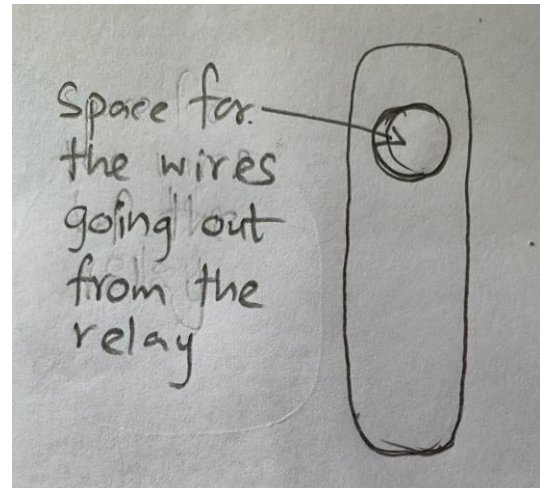 Space for.
the wires
going out
from the
relay